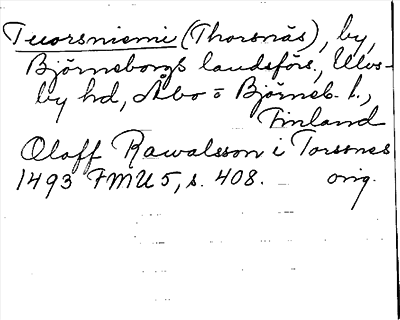 Tuorsniemi (Thorsnäs), by,
Björneborgs landsförs., Ulvs-
by hd, Åbo = Björneb. l.,
Finland
Oloff Rawalsson i Torssnes
1493 FMU 5, s. 408. orig.